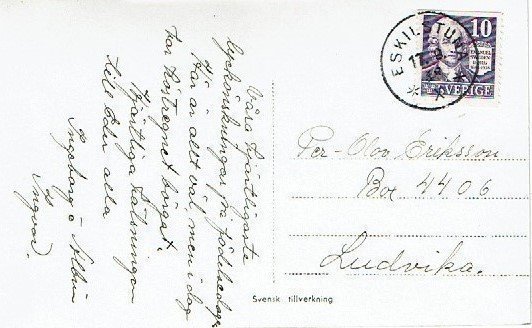 Våra hjärtligaste
lyckönskningar på födelsedagen
Här är allt väl, men i dag
har höstregnet börjat.
Hjärtliga hälsningar
till Eder alla
Ingeborg o
Ingvar.
ESKILSTUNA
17. 9.
10
SVERIGE
Per-Olov Eriksson
Box 4406
Ludvika.
Svensk tillverkning